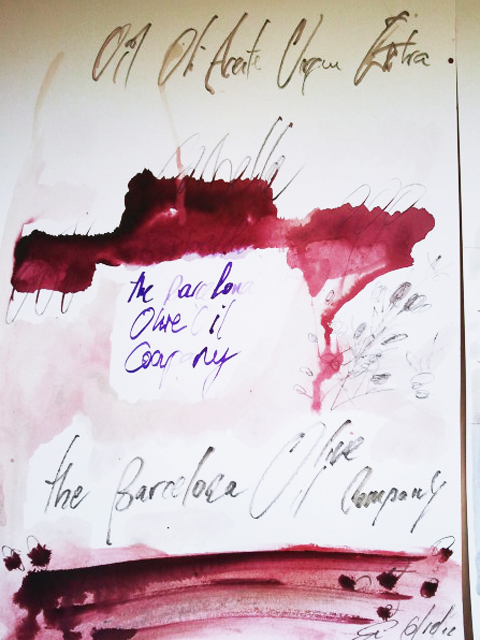 Oil Oli Aceite Virgen Extra
the Barcelona
Olive Oil
Company
the Barcelona Olive
Company